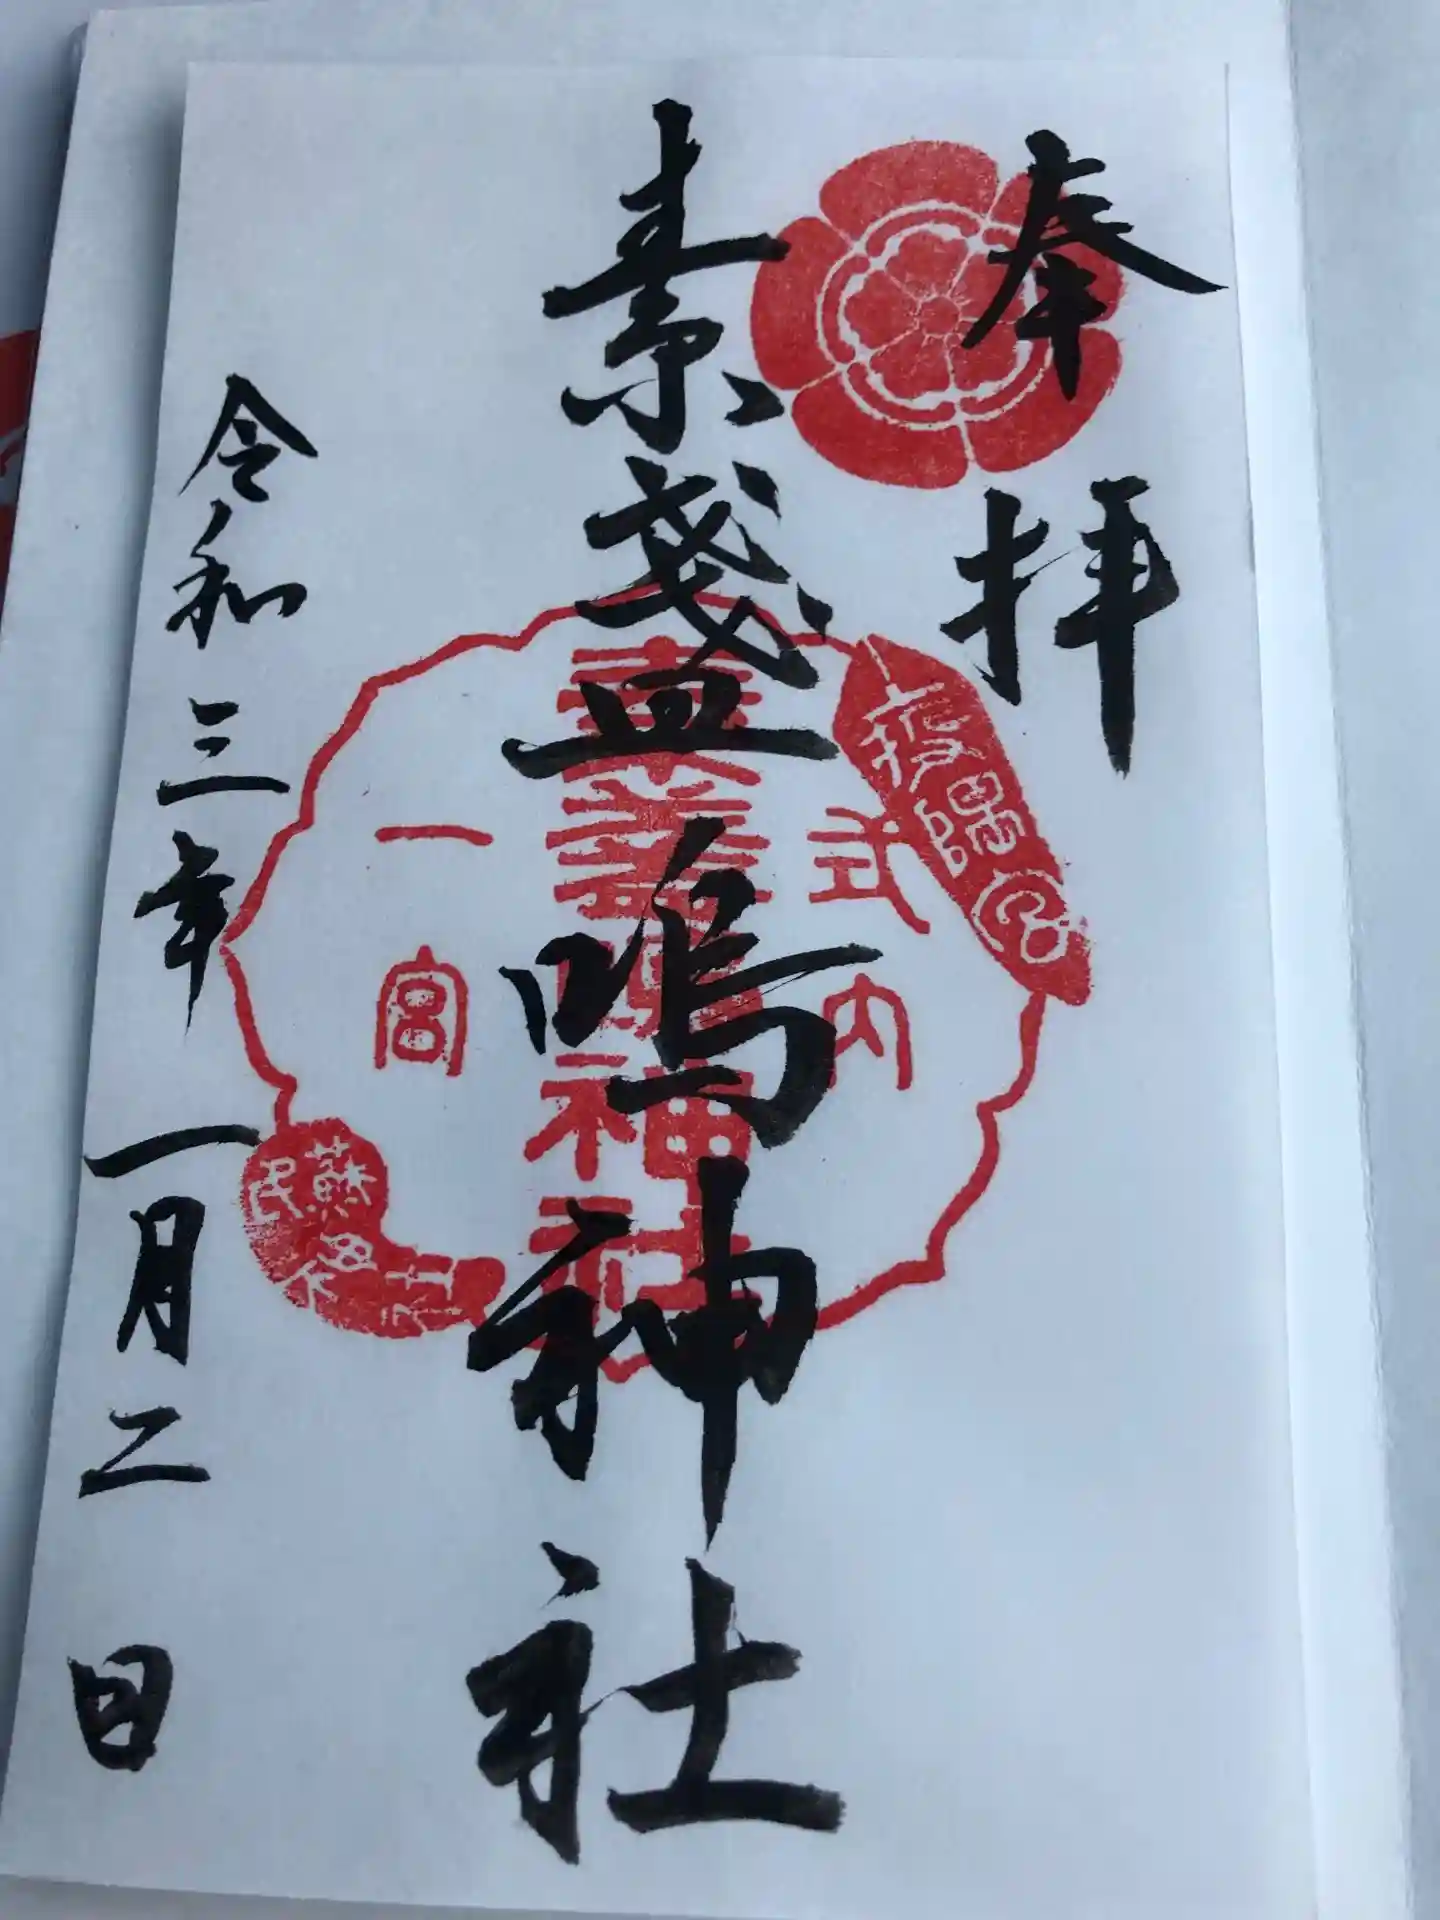 奉拝
素盞嗚神社
令和三年一月二日
素盞嗚神社
式内
一宮
疫隅
蘇民将来